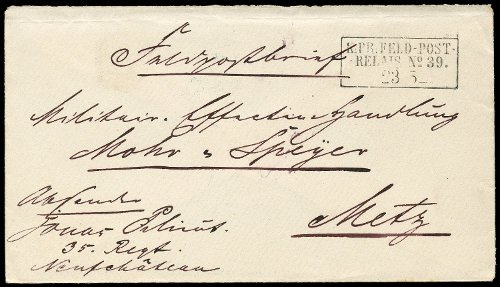 Feldpostbrief
K.PR.FELD-POST-
RELAIS No 39.
23 5
Militair-Effecten-Handlung
Mohr & Speyer
Metz
Absender
Jonas
35. Regt.
Neufchâteau